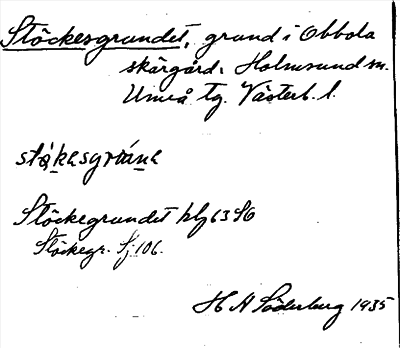 Stöckesgrundet, grund i Obbola
skärgård, Holmsund sn.
Umeå tg. Västerb. l.
Stöckegrundet hlg 63 SO
Stöckegr. Sj 106.
H A Söderberg 1935